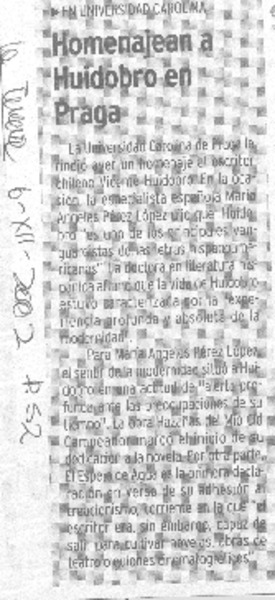 EN UNIVERSIDAD CAROLINA
Homenajean a
Huidobro en
Praga
La Universidad Carolina de Praga le
rindió ayer un homenaje al escritor
chileno Vicente Huidobro. En la oca-
sión, la especialista española María
Angeles Pérez López dijo que Huido-
bro "es uno de los principales van-
guardistas de las letras hispanoame-
ricanas". La doctora en literatura his-
pánica afirmó que la vida de Huidobro
estuvo caracterizada por la "expe-
riencia profunda y absoluta de la
modernidad".
Para María Angeles Pérez López,
el sentir de la modernidad situó a Hui-
dobro en una actitud de "alerta pro-
funda ante las preocupaciones de su
tiempo". La obra Hazañas del Mío Cid
Campeador marcó el inicio de su
dedicación a la novela. Por otra parte,
El Espejo de Agua es la primera decla-
ración en verso de su adhesión al
creacionismo, corriente en la que "el
escritor era, sin embargo, capaz de
salir para cultivar novelas, obras de
teatro o guiones cinematográficos".
6-XII-2002